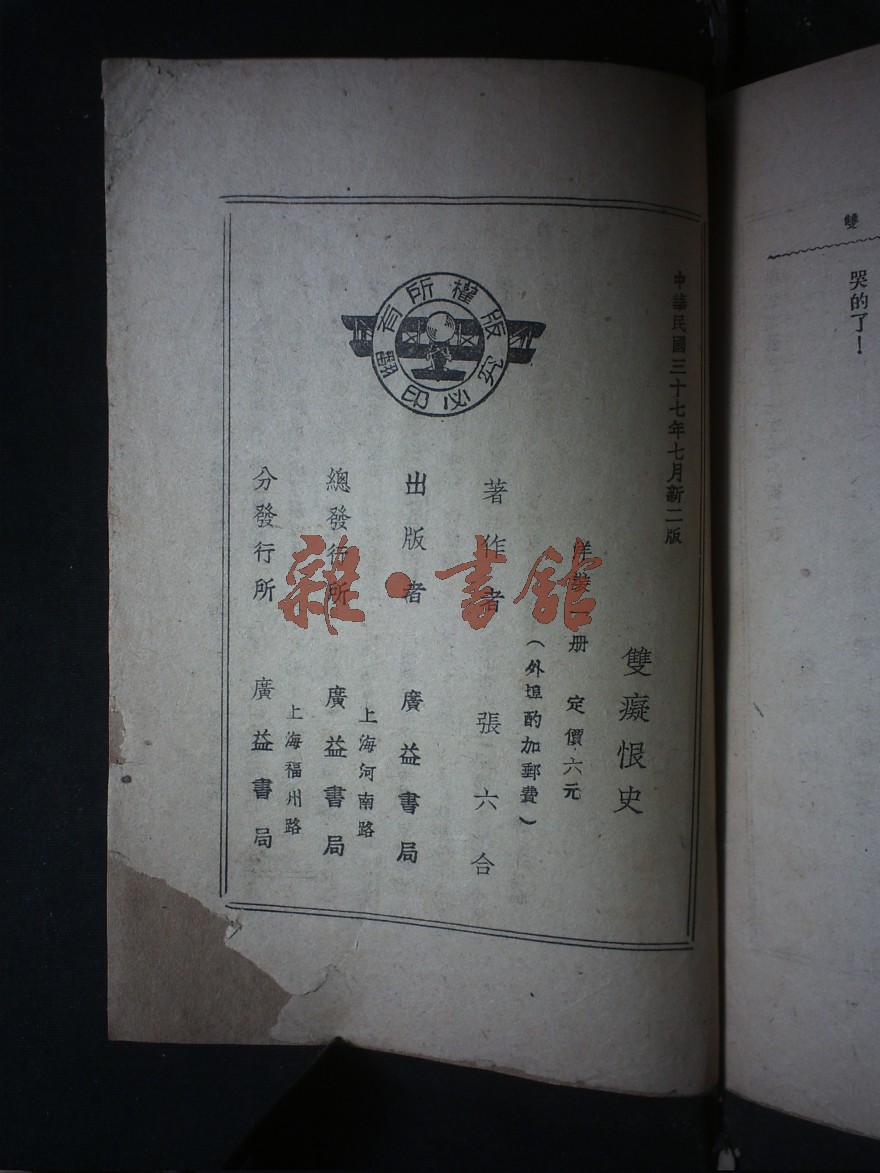 雙
哭的了！
中華民國三十七年七月新二版
雙癡恨史
洋裝一册　定價六元
（外埠酌加郵費）
著作者　張六合
出版者　廣益書局
上海河南路
總發行所　廣益書局
上海福州路
分發行所　廣益書局
版權所有
翻印必究
雜·書館